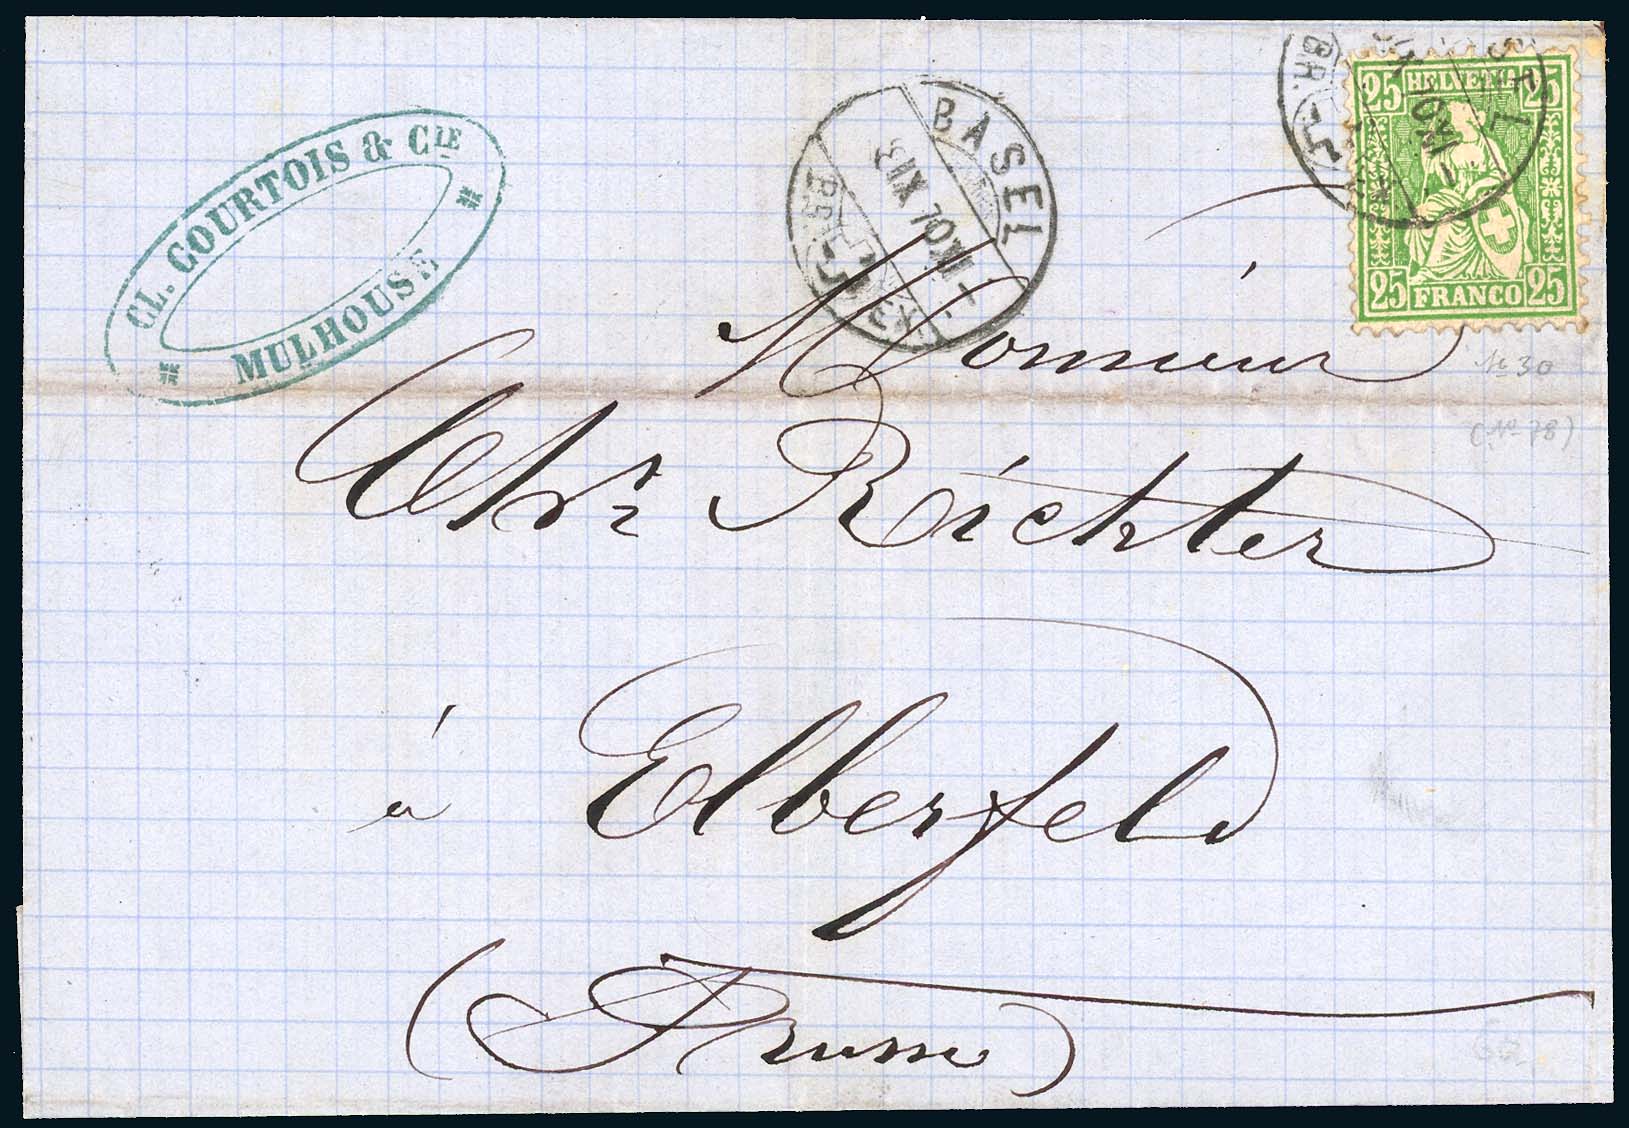 CL. COURTOIS & CIE
MULHOUSE
BASEL
13 XII 70 XI -
BR. EXP.
25 HELVETIA 25
25 FRANCO 25
Monsieur
No 30
(No 78)
Chr. Richter
à Elberfeld
(Prusse)